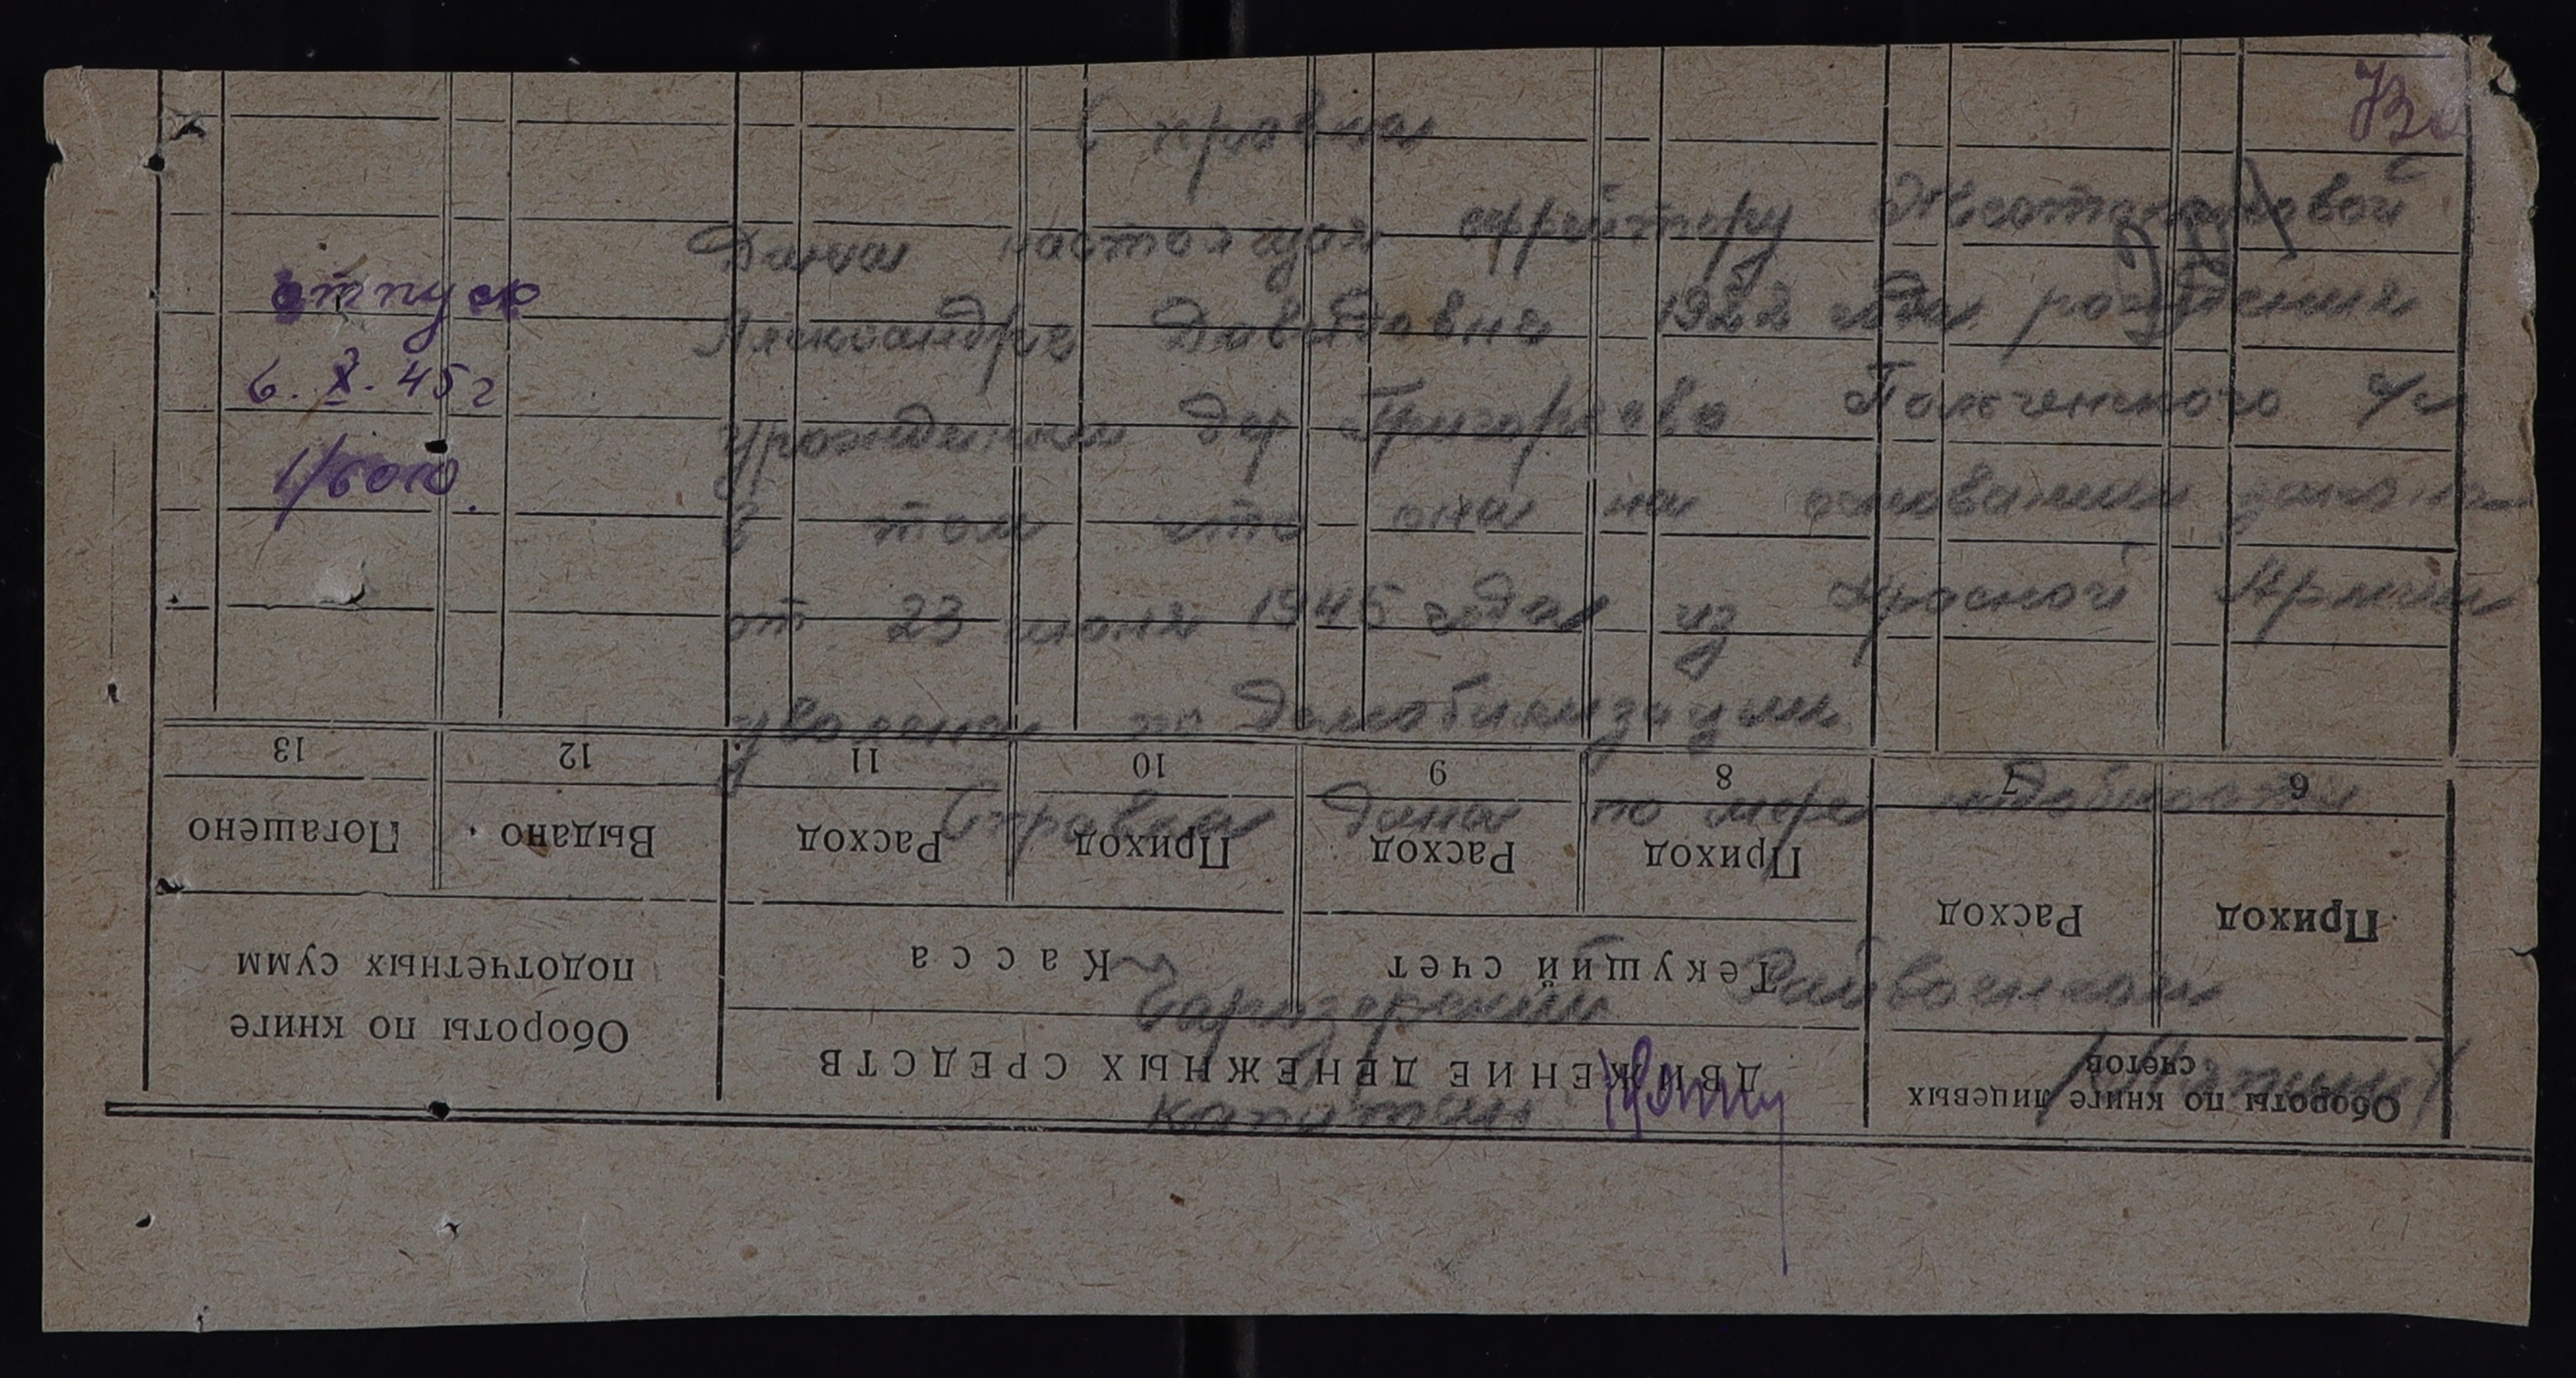 Справка
Дана настоящая ефрейтору
Александре Давыдовне 1922 года рождения
урожденной дер Григорьево с/с
в том что она на основании закона
от 23 июня 1945 года из Красной Армии
уволена по Демобилизации
Справка дана по мере надобности
Райвоенком
капитан
отпуск
6. X. 45 г
13
12
11
10
9
8
7
6
Погашено
Выдано
Расход
Приход
Расход
Приход
Расход
Приход
Касса
Текущий счет
Обороты по книге
подотчетных сумм
ДВИЖЕНИЕ ДЕНЕЖНЫХ СРЕДСТВ
Обороты по книге лицевых
счетов